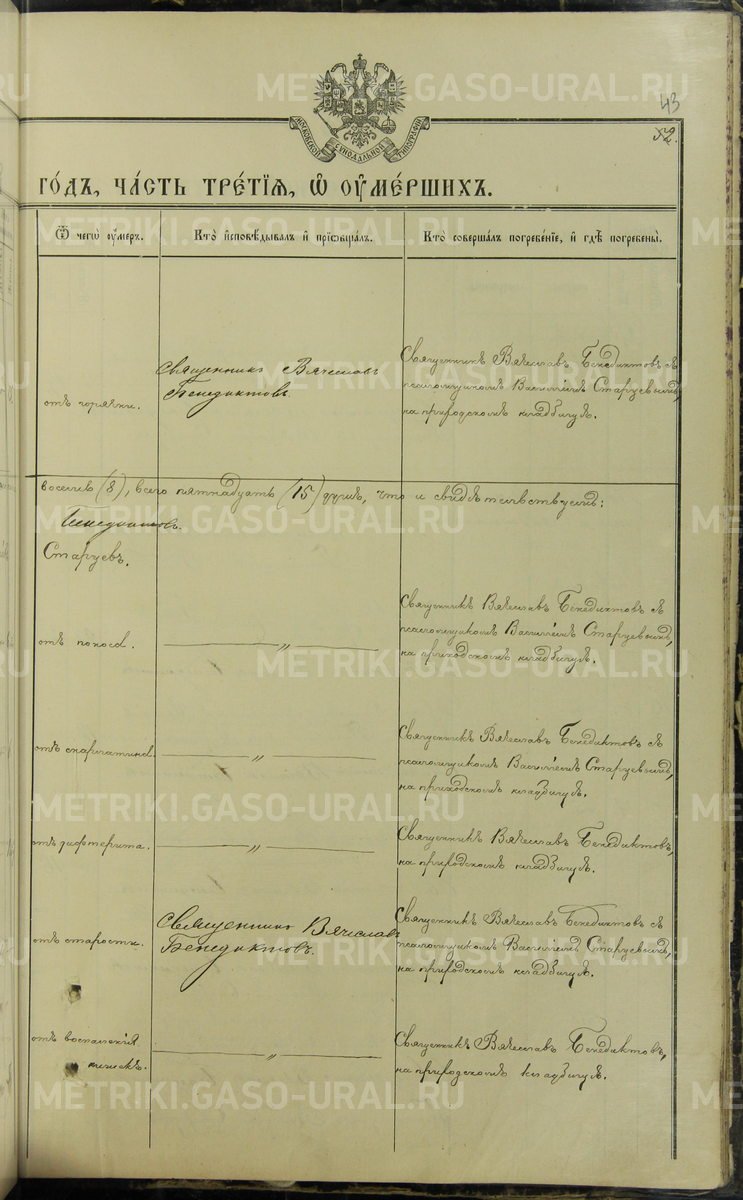 METRIKI.GASO-URAL.RU
43
52.
МОСКОВСКОЙ СѴНОДАЛЬНОЙ ТИПОГРАФІИ
ГО́ДЪ, ЧА́СТЬ ТРЕ́ТІѦ, Ѽ ОУ҆МЕ́РШИХЪ.
Ѿ чегѡ̀ оу҆́меръ.
Кто̀ и҆сповѣ́дывалъ и҆ прїѡбща́лъ.
Кто̀ соверша́лъ погребе́нїе, и҆ гдѣ̀ погребены̀.
отъ горячки.
Священникъ Вячеславъ
Бенедиктовъ.
Священникъ Вячеславъ Бенедиктовъ съ
псаломщикомъ Василіемъ Старцевымъ,
на приходскомъ кладбищѣ.
восемь (8), всего пятнадцать (15) душъ, что и свидѣтельствуемъ:
Бенедиктовъ.
Старцевъ.
отъ поноса.
— „ —
Священникъ Вячеславъ Бенедиктовъ съ
псаломщикомъ Василіемъ Старцевымъ,
на приходскомъ кладбищѣ.
отъ скарлатины.
— „ —
Священникъ Вячеславъ Бенедиктовъ съ
псаломщикомъ Василіемъ Старцевымъ,
на приходскомъ кладбищѣ.
отъ дифтерита.
— „ —
Священникъ Вячеславъ Бенедиктовъ,
на приходскомъ кладбищѣ.
отъ старости.
Священникъ Вячеславъ
Бенедиктовъ.
Священникъ Вячеславъ Бенедиктовъ съ
псаломщикомъ Василіемъ Старцевымъ,
на приходскомъ кладбищѣ.
отъ воспаленія
кишекъ.
— „ —
Священникъ Вячеславъ Бенедиктовъ,
на приходскомъ кладбищѣ.